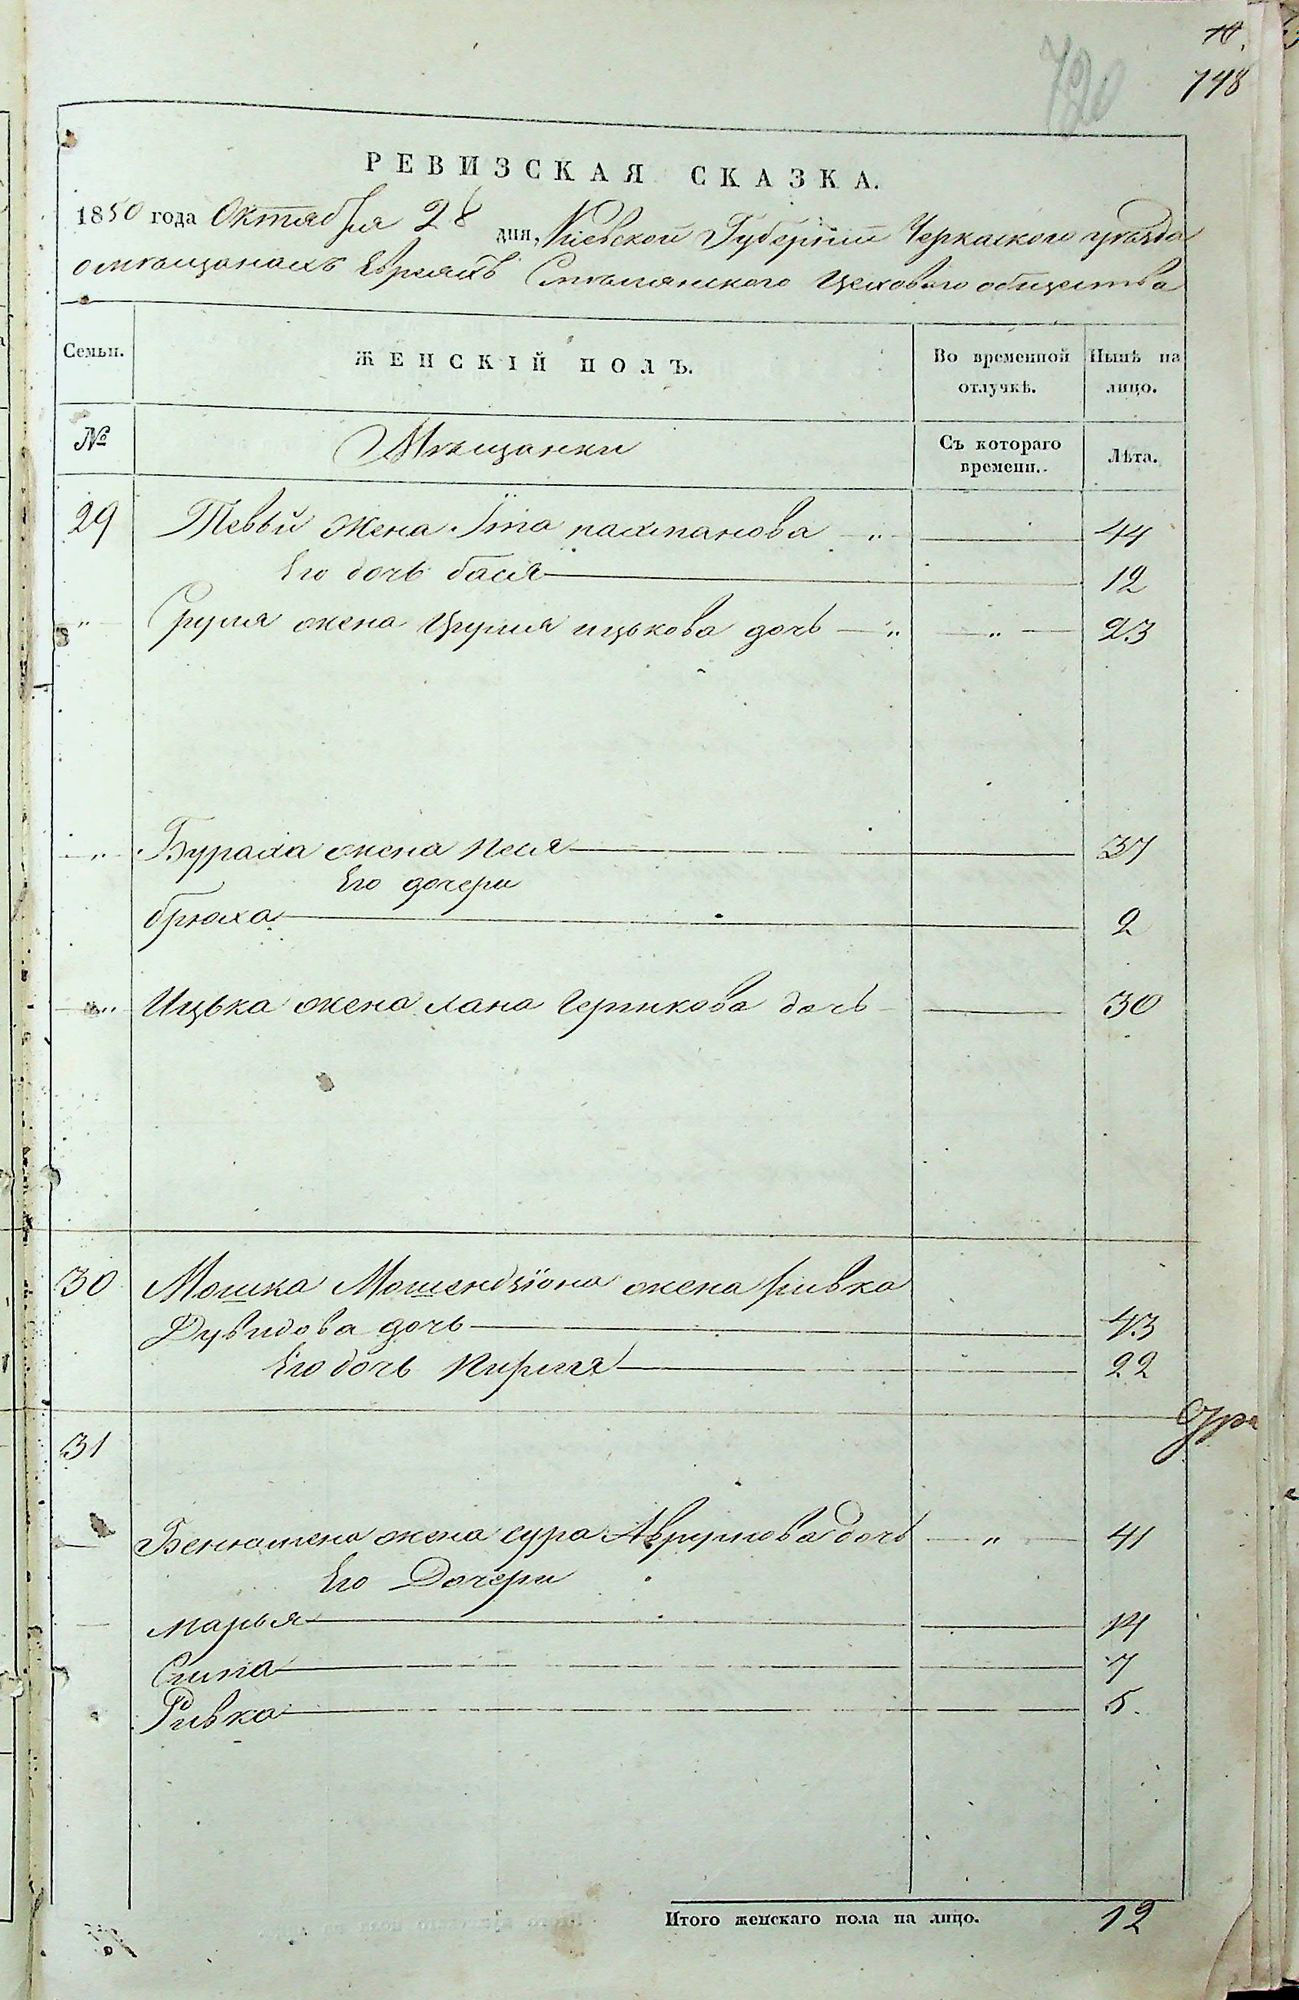 10.
748
720
РЕВИЗСКАЯ СКАЗКА.
1850 года Октября 28 дня, Кіевской Губерніи Черкаского уѣзда
о мѣщанахъ Евреяхъ Смѣлянского Цеховаго общества
Семьи. ЖЕНСКІЙ ПОЛЪ. Во временной отлучкѣ. Нынѣ на лицо.
№ Мѣщанки Съ котораго времени. Лѣта.
29 Тевьи жена 44
Его дочь бася 12
" Сруля жена ицькова дочь " " 23
" Бураха жена Песя 37
Его дочери
брюха 2
" Ицька жена хана дочь 30
30 Мошка жена ривка
Дувидова дочь 43
Его дочь 22
31
Сура
Бенюмена жена сура дочь " 41
Его Дочери
марья 14
7
Ривка 5.
Итого женскаго пола на лицо. 12